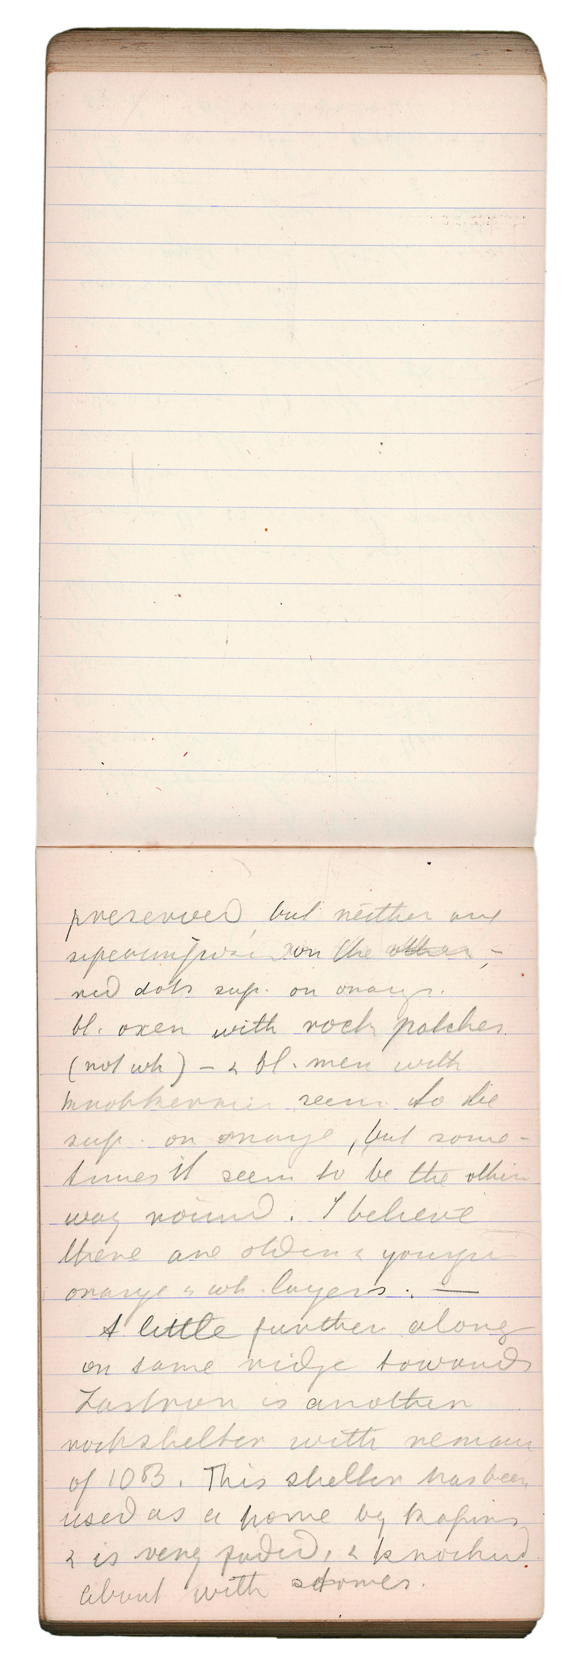 preserved but neither are
superimposed on the other –
red dots sup. on orange.
bl. oxen with rock patches
(not wh) – & bl. men with
knobkerries seem to be
sup. on orange, but some-
times it seem to be the other
way round. I believe
there are older & younger
orange & wh. layers. —
A little further along
on same ridge towards
Zastron is another
rockshelter with remains
of 10 B. This shelter has been
used as a home by
& is very faded, & knocked
about with stones.